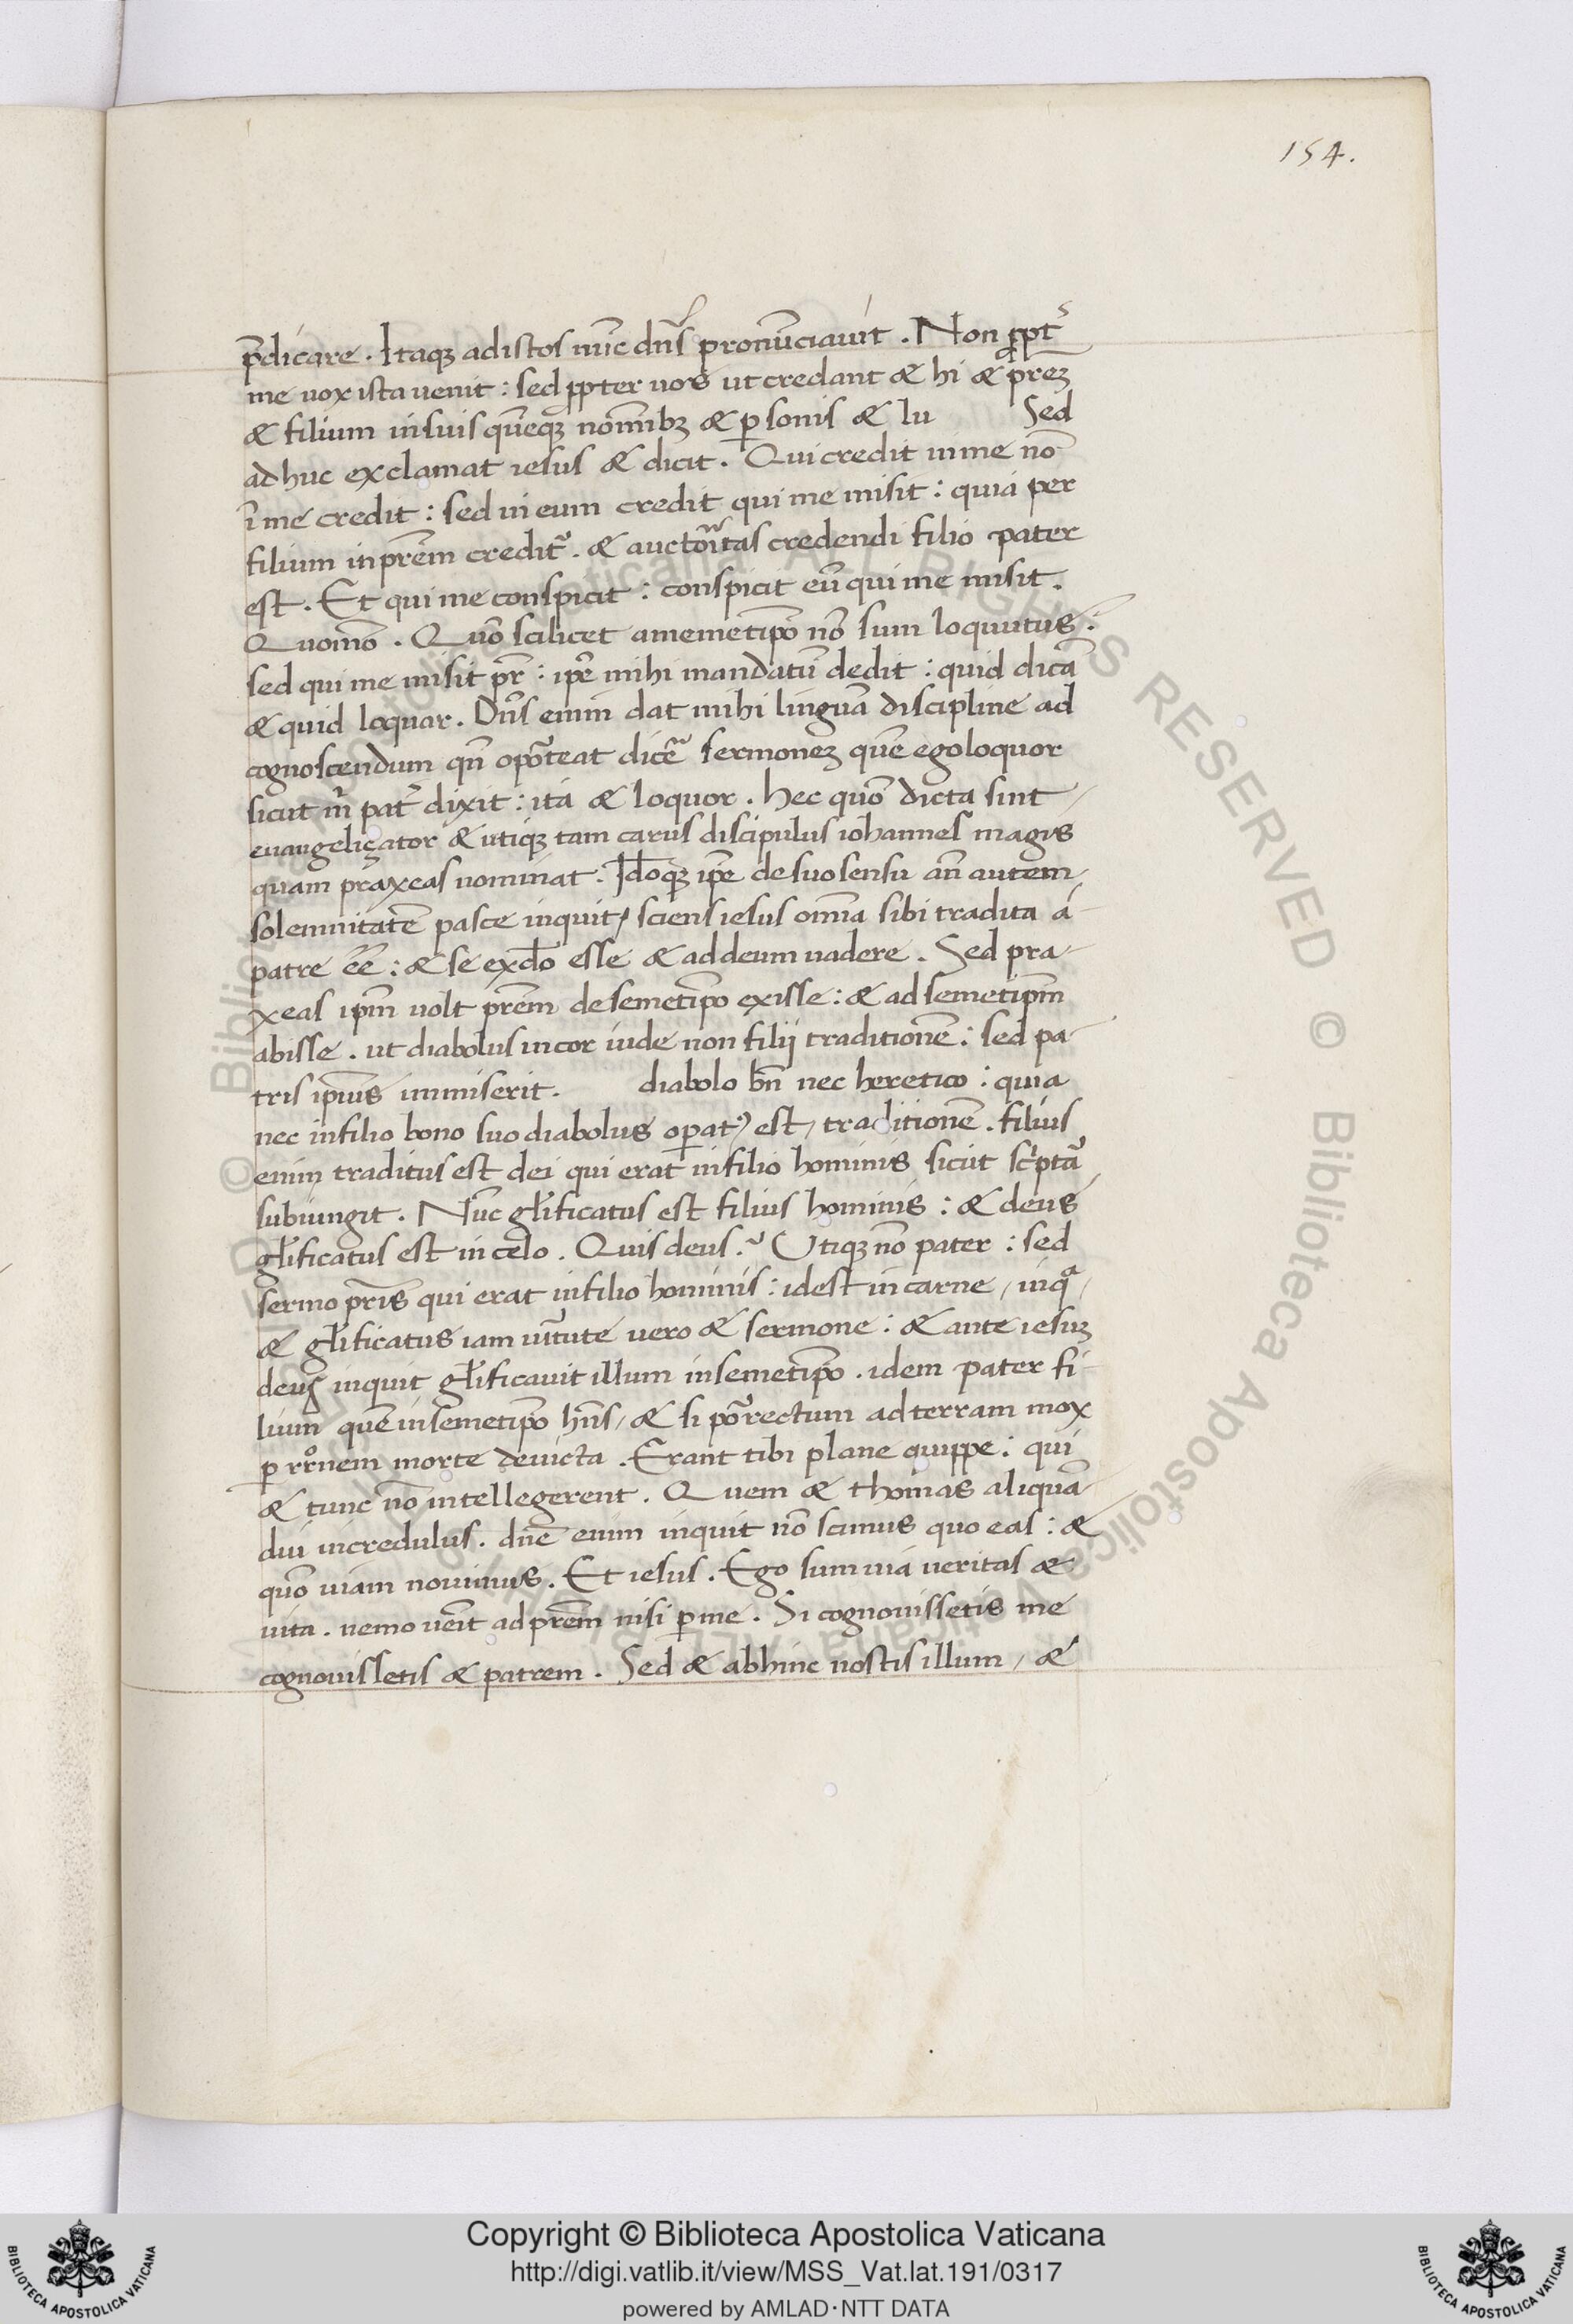 154.
p̄dicare. Itaqꝫ ad istos nūc dn̄s pronūnciauit. Non ꝓpt̉
me uox ista uenit: sed ꝓpter uos ut credant & hi & prēꝫ
& filium in suis quēqꝫ nomībꝫ & ꝑsonis & lu Sed
adhuc exclamat iesus & dicit. Qui credit in me nō
ī me credit: sed in eum credit qui me misit: quia per
filium in prēm credit᷑. & auctoritas credendi filio pater
est. Et qui me conspicit: conspicit eū qui me misit.
Quomō. Quō scilicet a memetip̄o nō sum loquutus:
sed qui me misit pr̄: ip̄e mihi mandatū dedit: quid dicā
& quid loquar. Dn̄s enim dat mihi linguā discipline ad
cognoscendum qn̄ oporteat dicē sermoneꝫ quē ego loquor
sicut m̄ pat̉ dixit: ita & loquor. Hec quō dicta sint
euangelizator & utiqꝫ tam carus discipulus iohannes magis
quam praxeas nominat. Id̄oqꝫ ip̄e de suo sensu an̄ autem
solemnitatē pasce inquit, sciens iesus om̄ia sibi tradita a
patre ēē: & se ex dō esse & ad deum uadere. Sed pra-
xeas ip̄m uolt prēm de semetip̄o exisse: & ad semetip̄m
abisse. ut diabolus in cor iude non filij traditionē: sed pa-
tris ip̄ius immiserit. diabolo bn̄ nec heretico: quia
nec in filio bono suo diabolus oꝑatꝰ est, traditionē. filius
enim traditus est dei qui erat in filio hominis sicut sc̓ptā
subiungit. Nūc gl̄ificatus est filius hominis: & deus
gl̄ificatus est in celo. Quis deus? Utiqꝫ nō pater: sed
sermo pr̄is qui erat in filio hominis: idest in carne, inqͣ,
& gl̄ificatus iam uirtute uero & sermone: & ante iesuꝫ
deus inquit gl̄ificauit illum in semetip̄o. idem pater fi-
lium quē in semetip̄o hn̄s, & si porrectum ad terram mox
ꝑ rr̄onem morte deuicta. Erant tibi plane quippe: qui
& tunc nō intellegerent. Quem & thomas aliquā
diu incredulus. dn̄e enim inquit nō scimus quo eas: &
quō uiam nouimus. Et iesus. Ego sum uia ueritas &
uita. nemo uēit ad prēm nisi ꝑ me. Si cognouissetis me
cognouissetis & patrem. Sed & abhinc nostis illum, &
© Biblioteca Apostolica Vaticana ALL RIGHTS RESERVED © Biblioteca Apostolica Vaticana ALL RIGHTS RESERVED
BIBLIOTECA APOSTOLICA VATICANA
Copyright © Biblioteca Apostolica Vaticana
http://digi.vatlib.it/view/MSS_Vat.lat.191/0317
powered by AMLAD·NTT DATA
BIBLIOTECA APOSTOLICA VATICANA